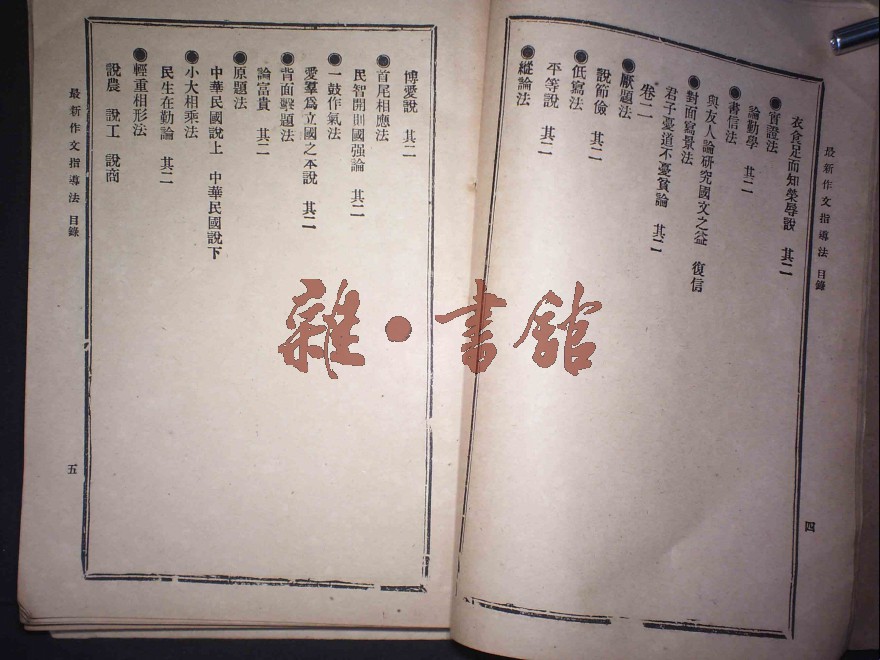 最新作文指導法 目錄
四
衣食足而知榮辱說 其二
●實證法
論勤學 其二
●書信法
與友人論研究國文之益 復信
●對面寫景法
君子憂道不憂貧論 其二
卷二
●厭題法
說節儉 其二
●低寫法
平等說 其二
●縱論法
博愛說 其二
●首尾相應法
民智開則國强論 其二
●一鼓作氣法
愛羣爲立國之本說 其二
●背面擊題法
論富貴 其二
●原題法
中華民國說上 中華民國說下
●小大相乘法
民生在勤論 其二
●輕重相形法
說農 說工 說商
最新作文指導法 目錄
五
雜·書館